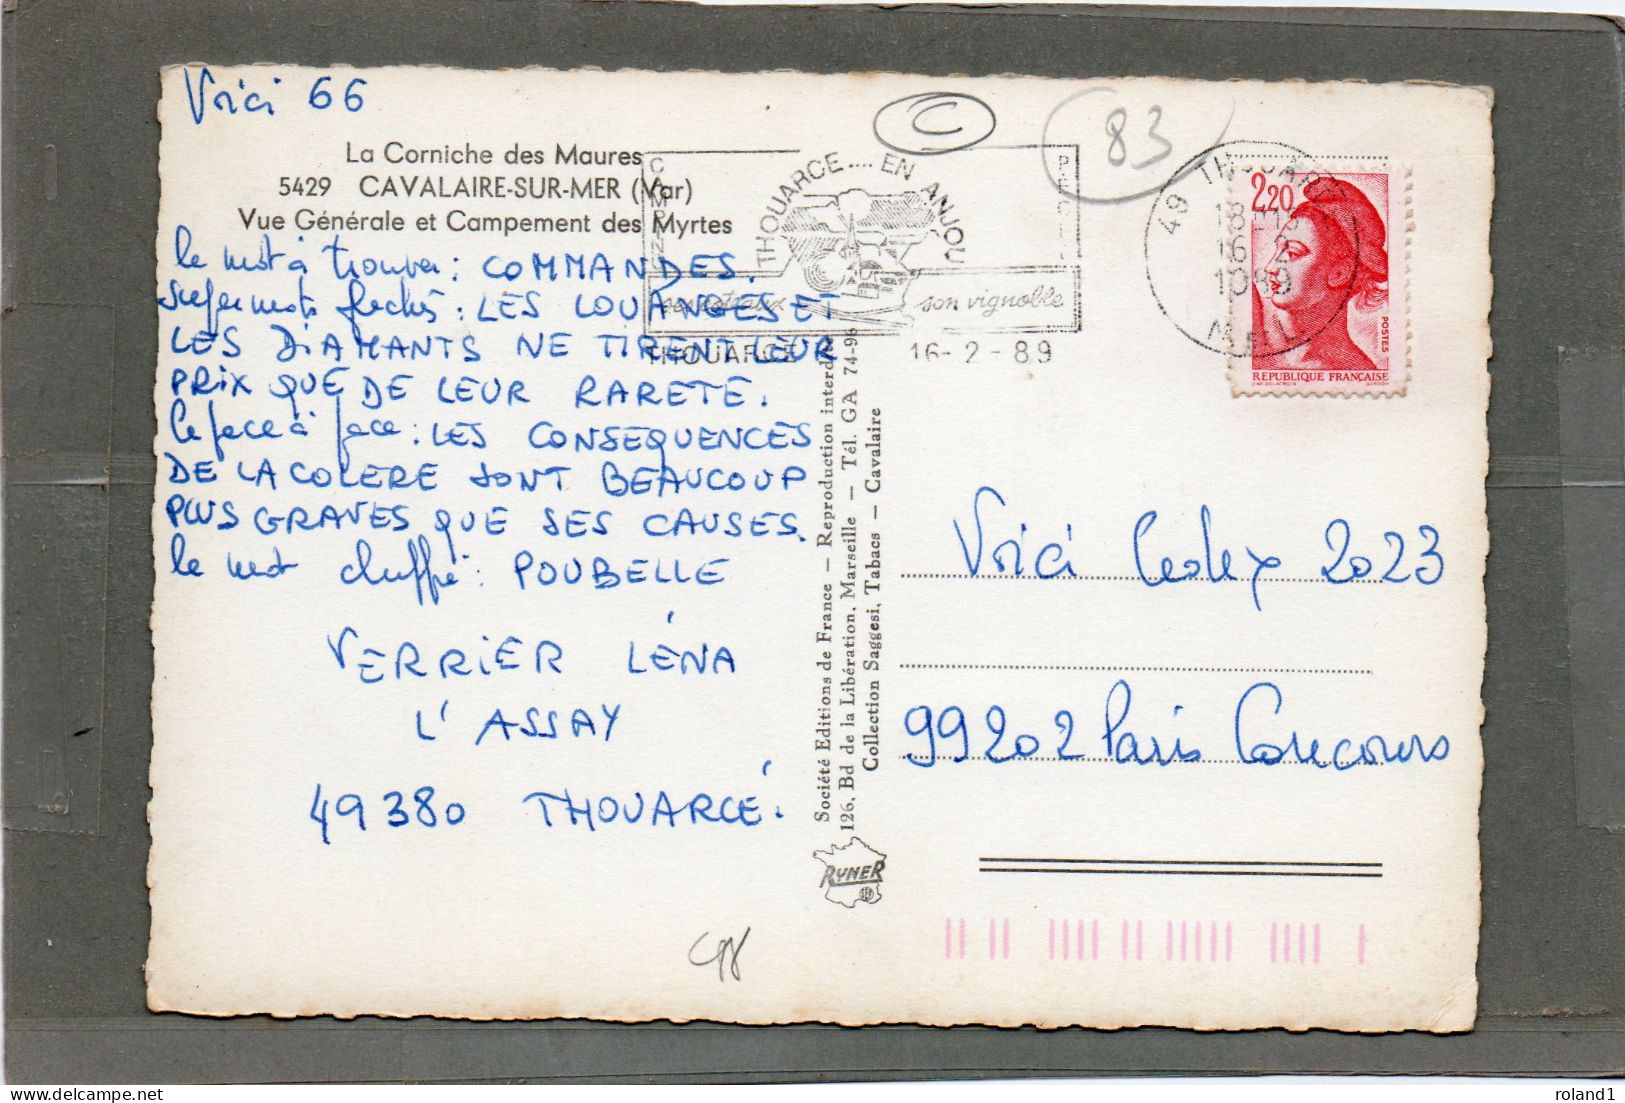 Voici 66
La Corniche des Maures
5429 CAVALAIRE-SUR-MER (Var)
Vue Générale et Campement des Myrtes
le mot à trouver : COMMANDES.
super mots fléchés : LES LOUANGES ET
LES DIAMANTS NE TIRENT LEUR
PRIX QUE DE LEUR RARETE.
le face à face : LES CONSEQUENCES
DE LA COLERE SONT BEAUCOUP
PLUS GRAVES QUE SES CAUSES.
le mot chiffré : POUBELLE
VERRIER LÉNA
L'ASSAY
49380 THOUARCÉ.
THOUARCE.... EN ANJOU
son vignoble
THOUARCE
16-2-89
C
83
49 THOUARCE
18H15
16-2
1989
M.&L.
2,20
POSTES
REPUBLIQUE FRANÇAISE
Société Editions de France — Reproduction interdite
126, Bd de la Libération, Marseille — Tél. GA 74-96
Collection Saggesi, Tabacs — Cavalaire
RYNER
Voici Cedex 2023
99202 Paris Concours
roland1